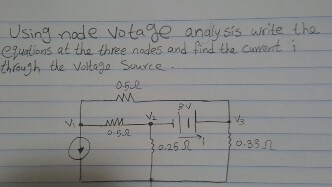 Using node Votage analysis write the
equations at the three nodes and find the current i
through the Voltage Source.
0.5Ω
V1
0.5Ω
V2
V3
0.25Ω
0.33Ω